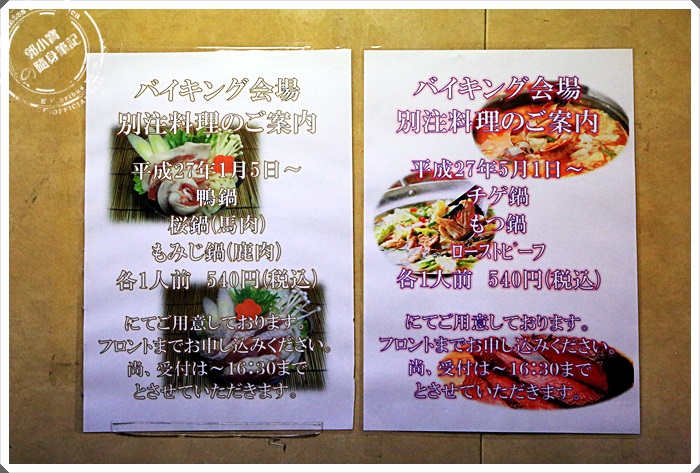 郭小寶
の隨身筆記
バイキング会場
別注料理のご案内
平成27年1月5日～
鴨鍋
桜鍋(馬肉)
もみじ鍋(鹿肉)
各1人前 540円(税込)
にてご用意しております。
フロントまでお申し込みください。
尚、受付は～16:30まで
とさせていただきます。
バイキング会場
別注料理のご案内
平成27年5月1日～
チゲ鍋
もつ鍋
ローストビーフ
各1人前 540円(税込)
にてご用意しております。
フロントまでお申し込みください。
尚、受付は～16:30まで
とさせていただきます。